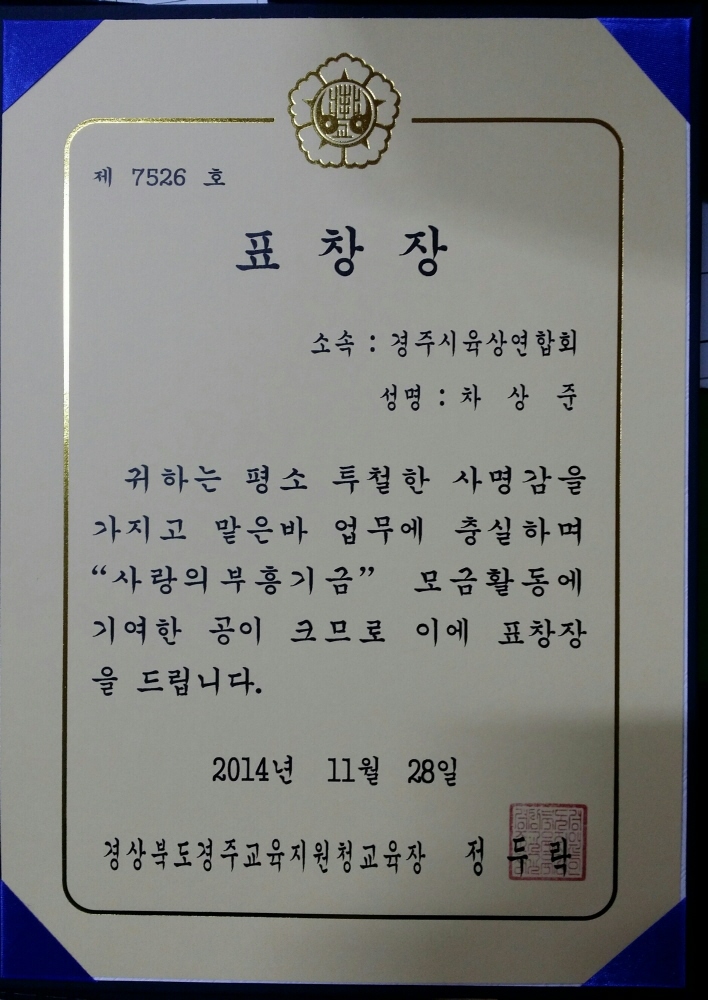 제 7526 호
표 창 장
소속 : 경주시육상연합회
성명 : 차 상 준
귀하는 평소 투철한 사명감을
가지고 맡은바 업무에 충실하며
“사랑의부흥기금” 모금활동에
기여한 공이 크므로 이에 표창장
을 드립니다.
2014년 11월 28일
경상북도경주교육지원청교육장 정 두 락